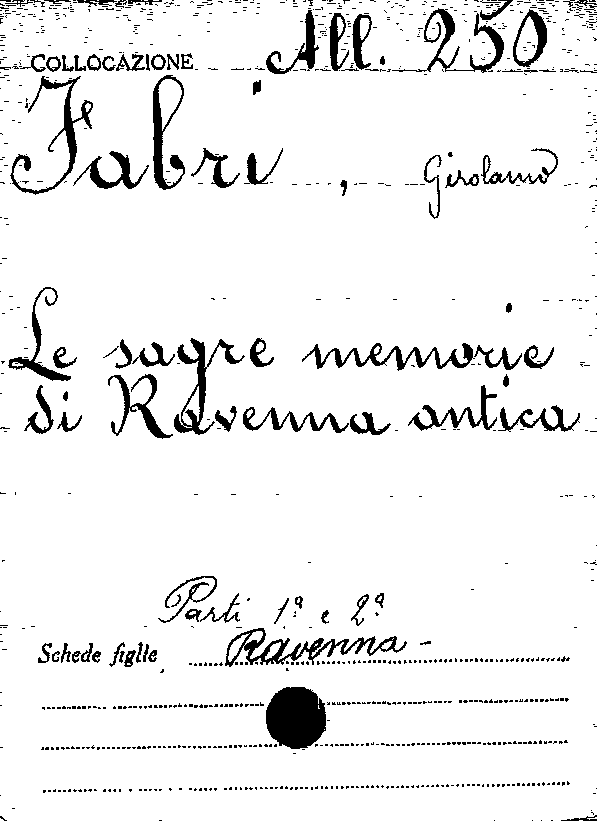 COLLOCAZIONE All. 250
Fabri, Girolamo
Le sagre memorie
di Ravenna antica
Parti 1ª e 2ª
Schede figlie Ravenna -